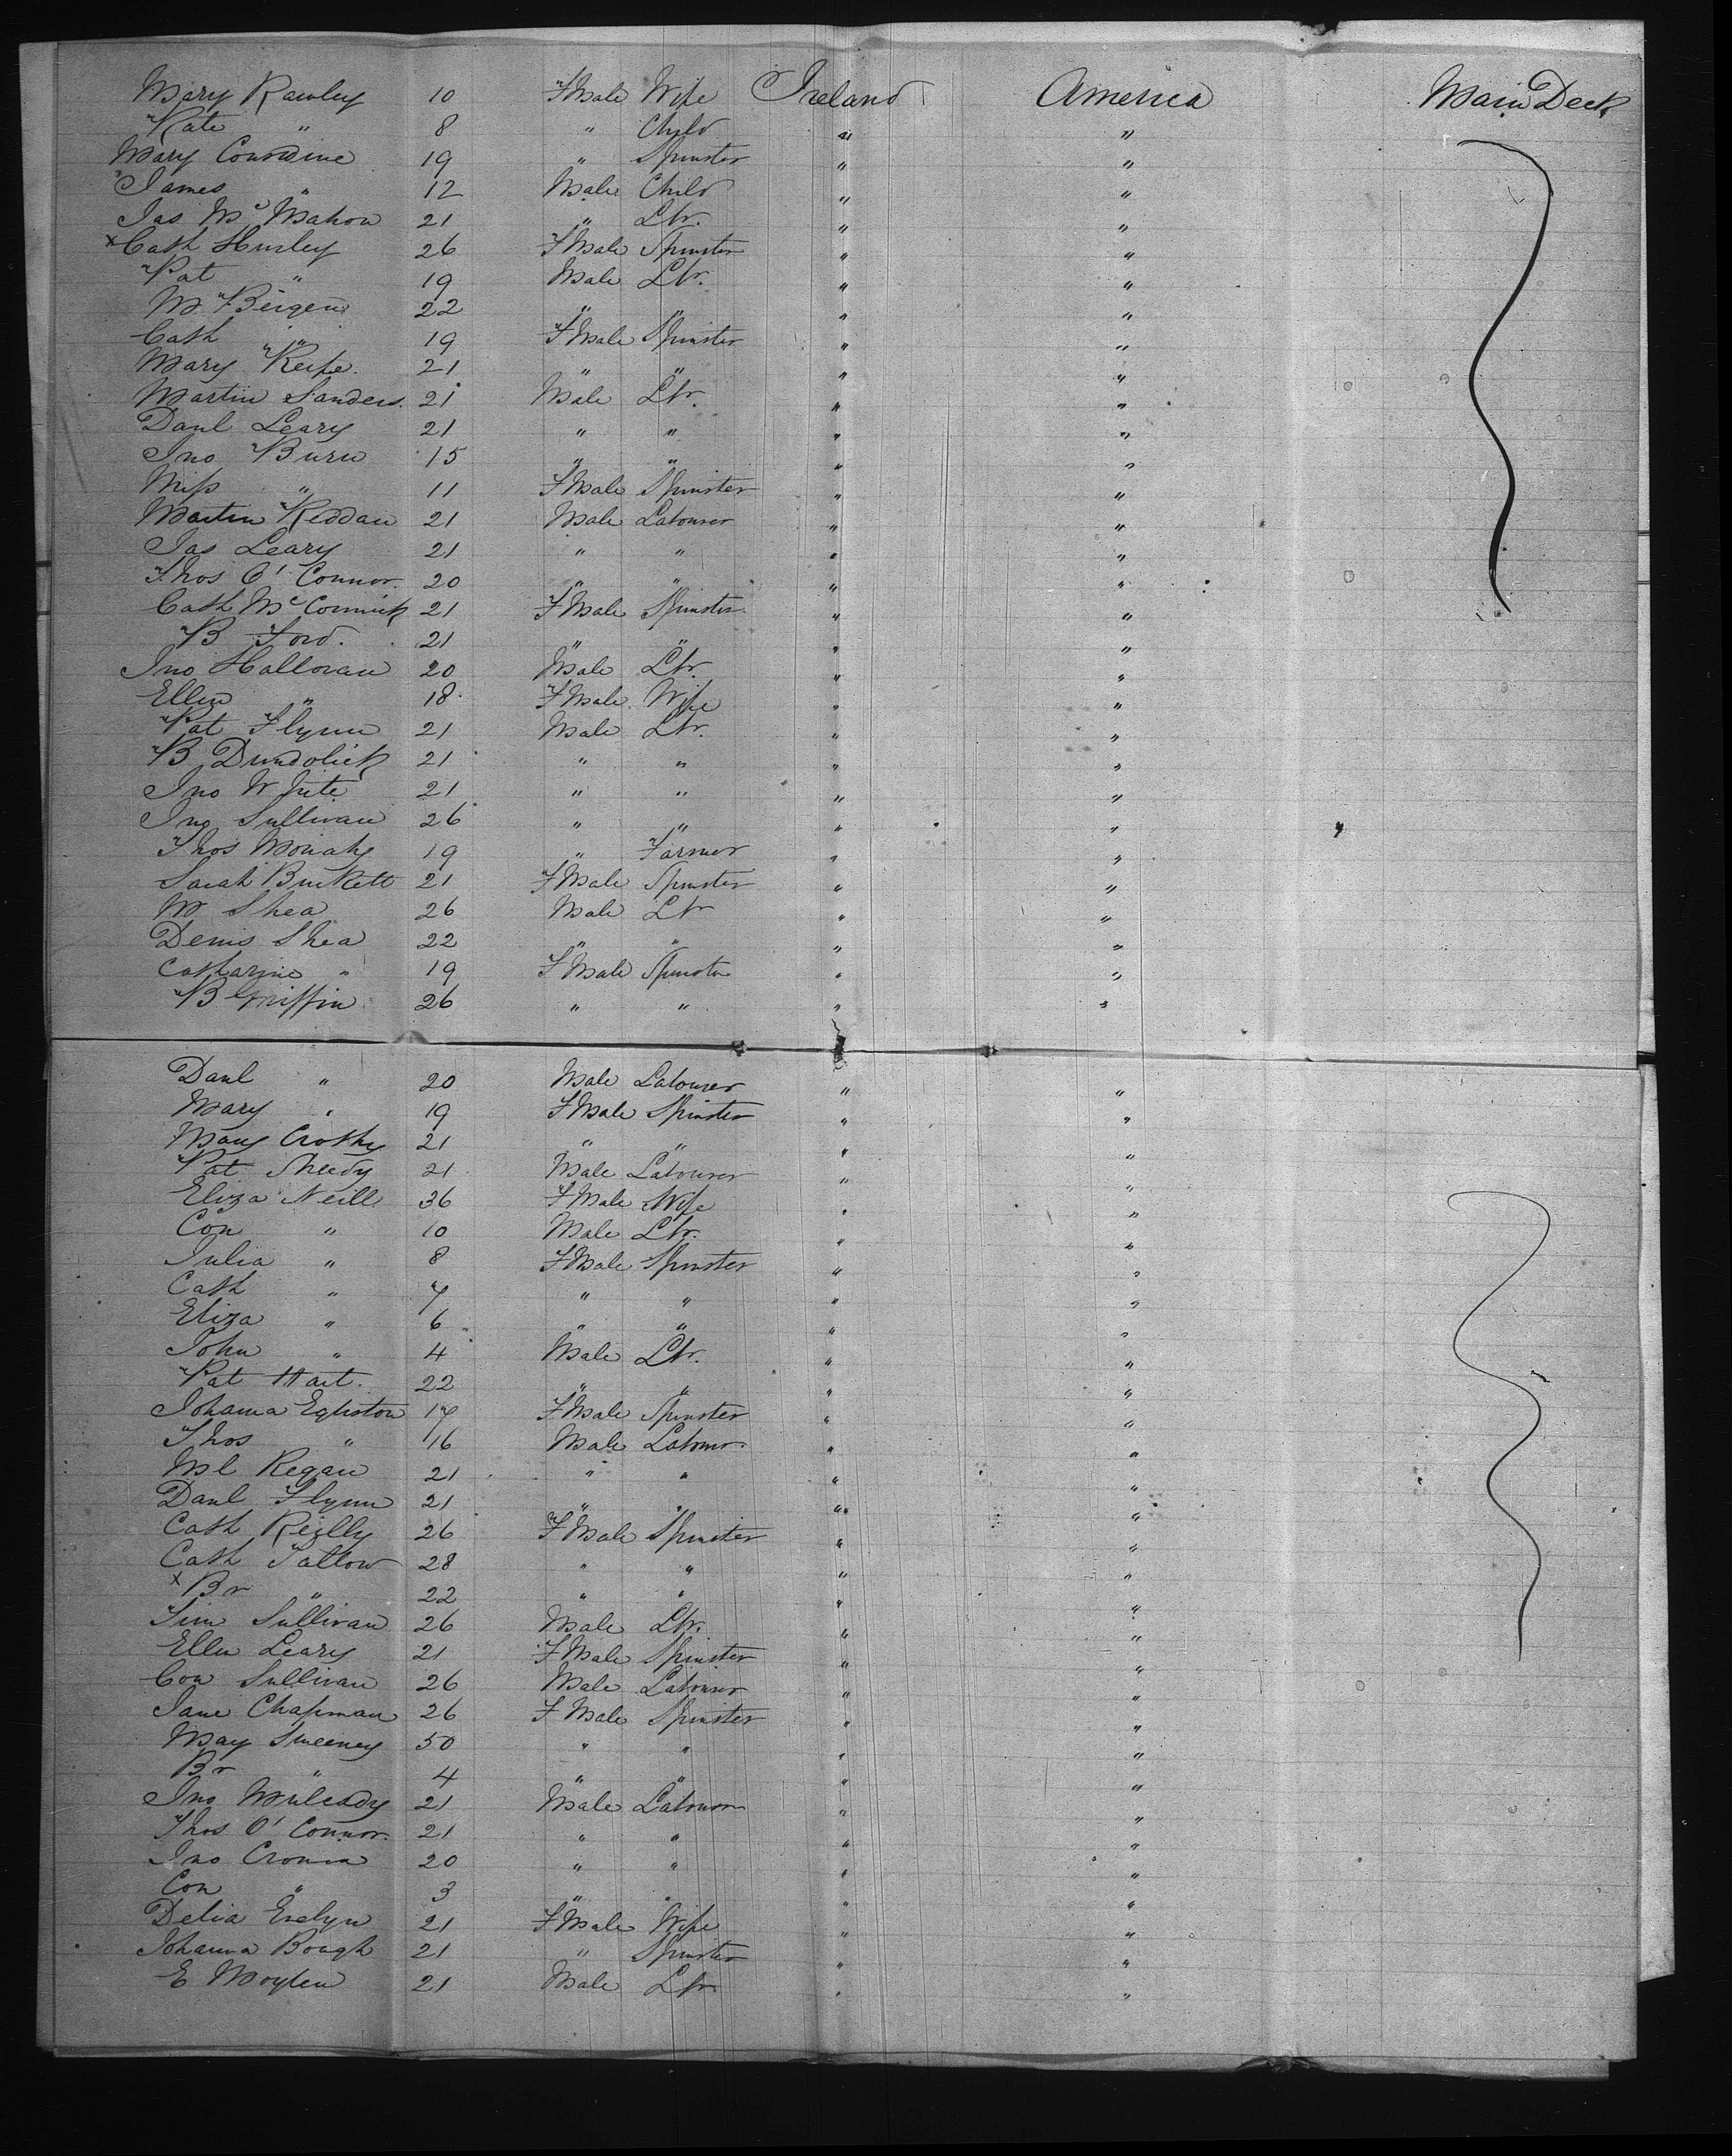 Mary Rawley 10 FMale Wife Ireland America Main Deck
Kate " 8 " Child " "
Mary Considine 19 " Spinster " "
James " 12 Male Child " "
Jas McMahon 21 " Lbr. " "
x Cath Hurley 26 FMale Spinster " "
Pat " 19 Male Lbr. " "
M Bergen 22 " " " "
Cath " 19 FMale Spinster " "
Mary Keife. 21 " " " "
Martin Sanders. 21 Male Lbr. " "
Danl Leary 21 " " " "
Jno Burn 15 " " " "
Miss " 11 FMale Spinster " "
Martin Reddan 21 Male Labourer " "
Jas Leary 21 " " " "
Thos O'Connor. 20 " " " "
Cath McCormick 21 FMale Spinster " "
B Ford. 21 " " " "
Jno Halloran 20 Male Lbr. " "
Ellen " 18 FMale Wife " "
Pat Flynn 21 Male Lbr. " "
B 21 " " " "
Jno White 21 " " " "
Jno Sullivan 26 " " " "
Thos Moriaty 19 " Farmer " "
Sarah Burkett 21 FMale Spinster " "
M Shea 26 Male Lbr " "
Denis Shea 22 " " " "
Catharine " 19 FMale Spinster " "
B Griffin 26 " " " "
Danl " 20 Male Labourer " "
Mary " 19 FMale Spinster " "
Mary Crothy 21 " " " "
Pat Sheedy 21 Male Labourer " "
Eliza Neill 36 FMale Wife " "
Con " 10 Male Lbr. " "
Julia " 8 FMale Spinster " "
Cath " 7 " " " "
Eliza " 6 " " " "
John " 4 Male Lbr. " "
Pat Hart. 22 " " " "
Johanna Egliston 17 FMale Spinster " "
Thos " 16 Male Labourer " "
Ml Regan 21 " " " "
Danl Flynn 21 " " " "
Cath Reilly 26 FMale Spinster " "
Cath Tallow 28 " " " "
x Br " 22 " " " "
Tim Sullivan 26 Male Lbr. " "
Ellen Leary 21 FMale Spinster " "
Con Sullivan 26 Male Labourer " "
Jane Chapman 26 FMale Spinster " "
May Sweeney 50 " " " "
Br " 4 " " " "
Jno Muleady 21 Male Labourer " "
Thos O'Connor. 21 " " " "
Jno Cronin 20 " " " "
Con " 3 " " " "
Delia Evelyn 21 FMale Wife " "
Johanna Bough 21 " Spinster " "
E Moylen 21 Male Lbr. " "